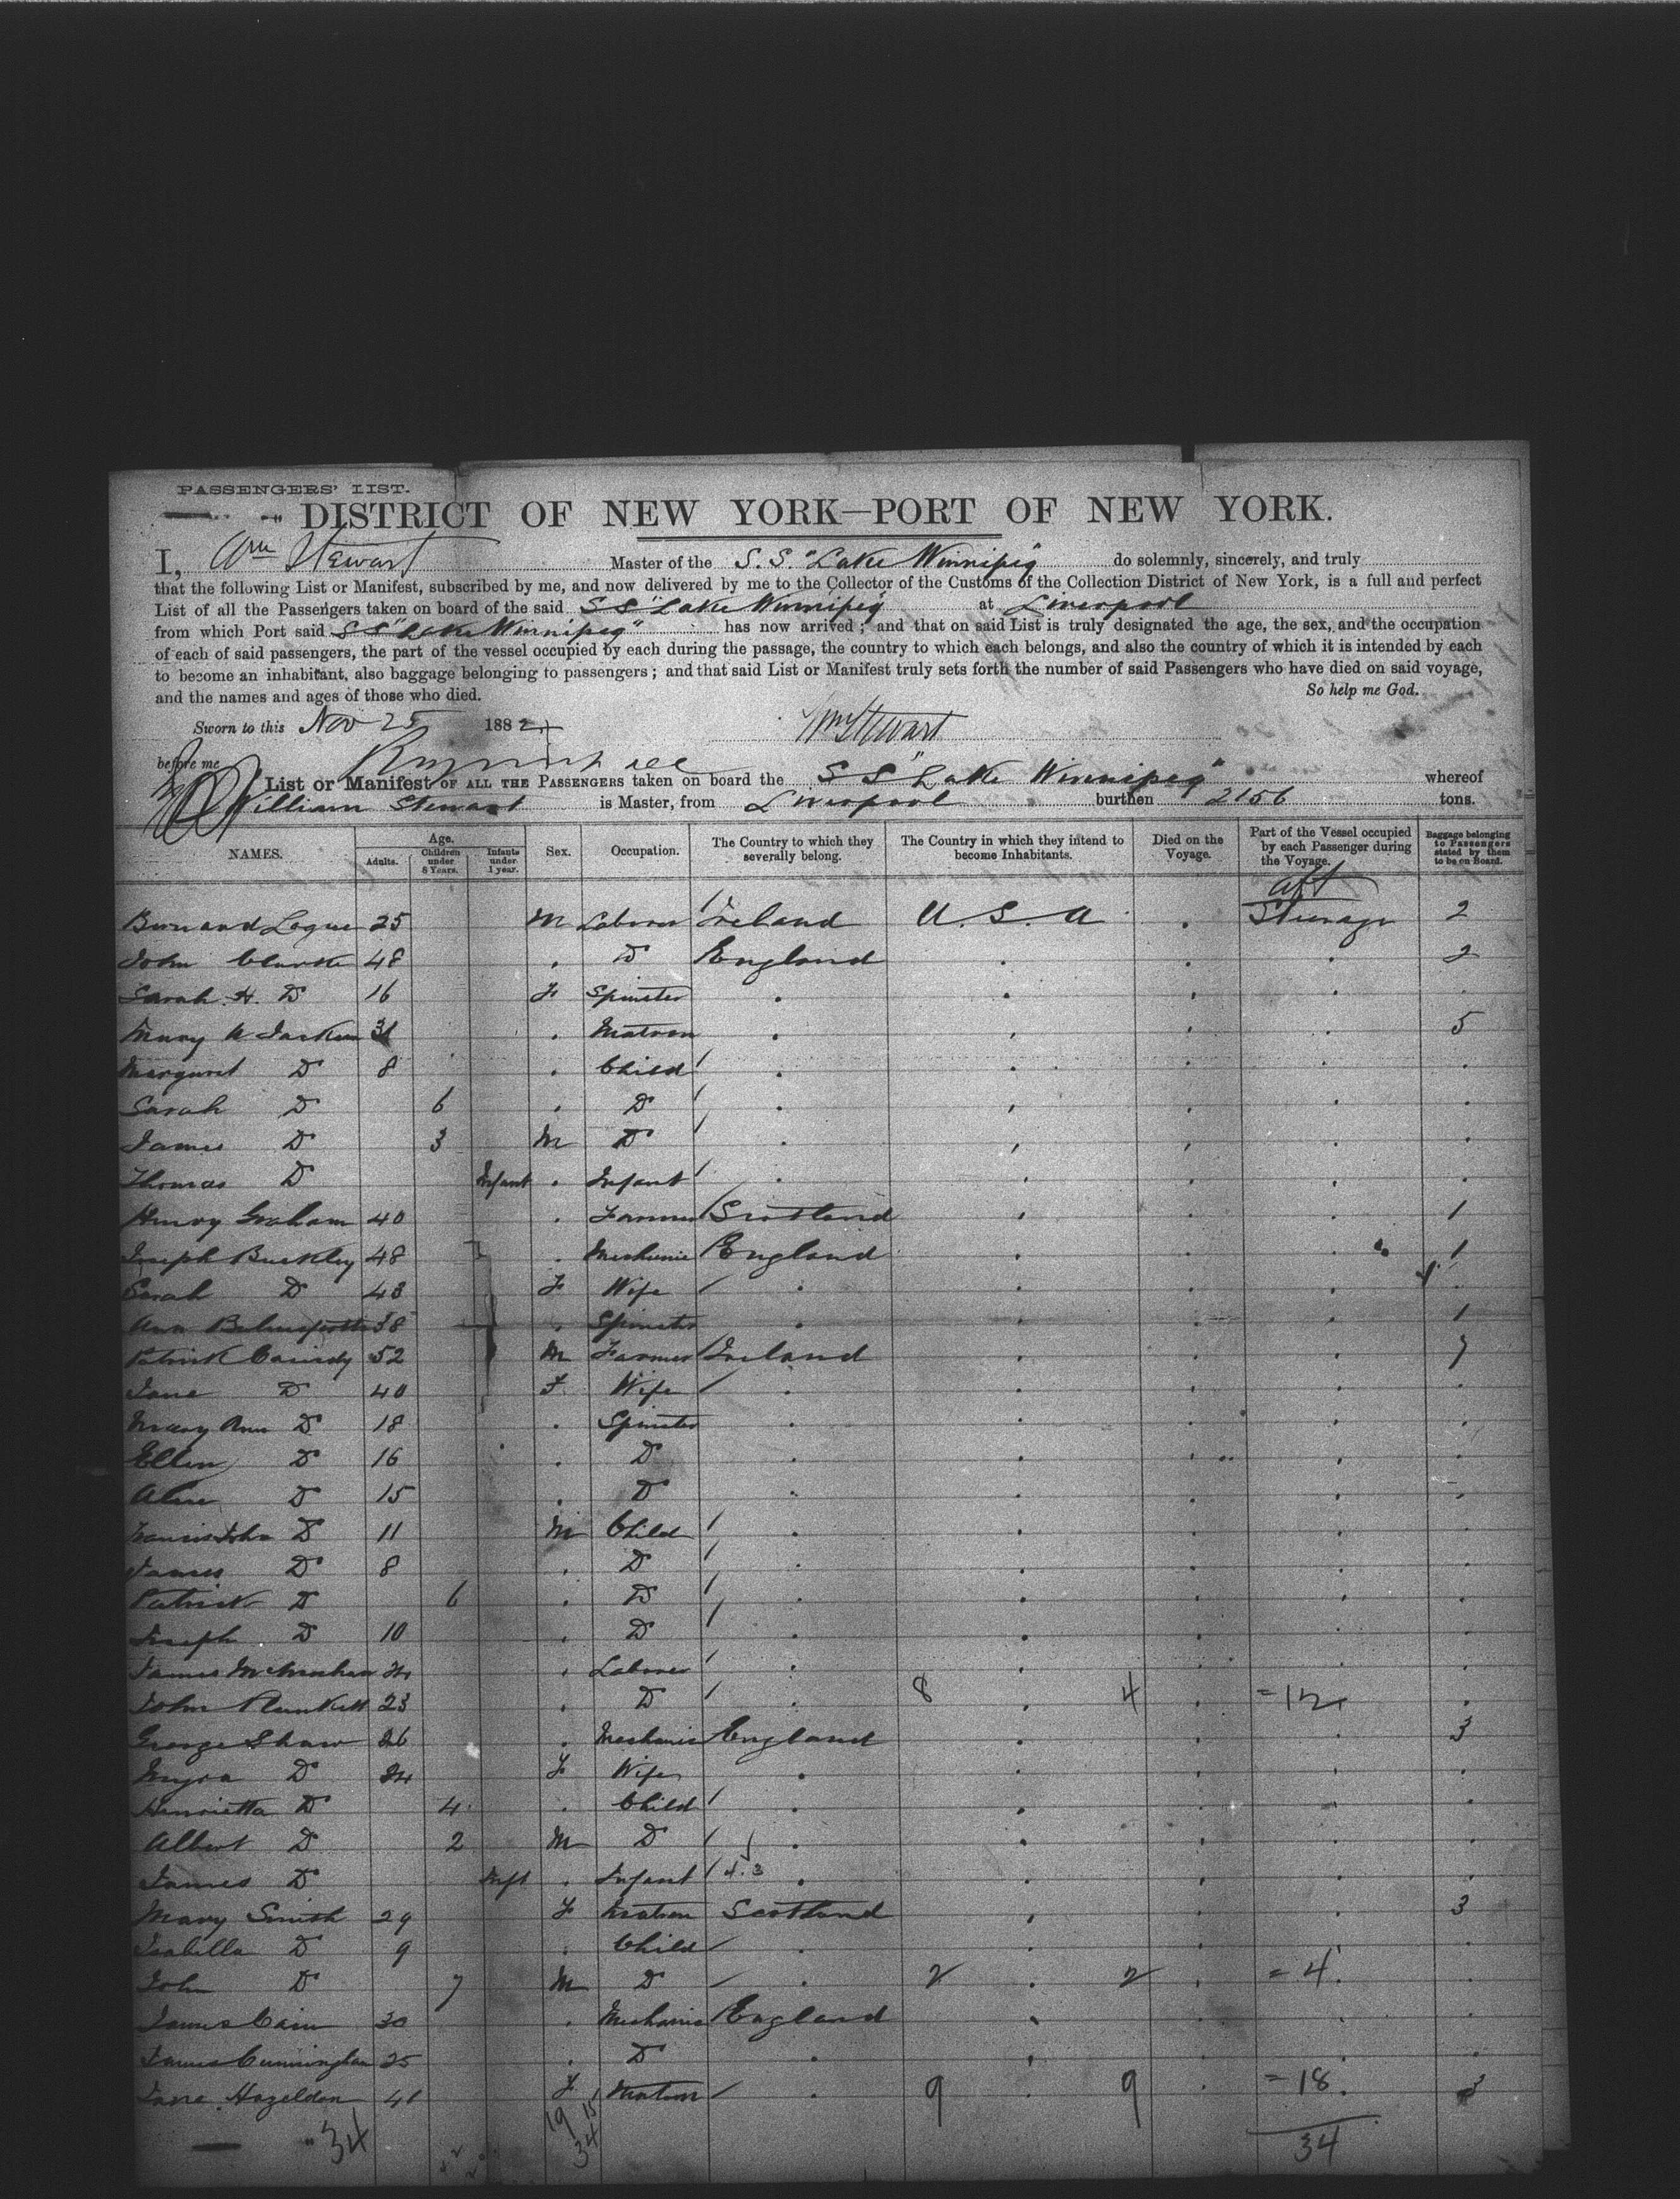 PASSENGERS' LIST.
DISTRICT OF NEW YORK—PORT OF NEW YORK.
I, Wm Stewart Master of the S. S. "Lake Winnipeg" do solemnly, sincerely, and truly
that the following List or Manifest, subscribed by me, and now delivered by me to the Collector of the Customs of the Collection District of New York, is a full and perfect
List of all the Passengers taken on board of the said S S "Lake Winnipeg at Liverpool
from which Port said S S "Lake Winnipeg" has now arrived; and that on said List is truly designated the age, the sex, and the occupation
of each of said passengers, the part of the vessel occupied by each during the passage, the country to which each belongs, and also the country of which it is intended by each
to become an inhabitant, also baggage belonging to passengers; and that said List or Manifest truly sets forth the number of said Passengers who have died on said voyage,
and the names and ages of those who died. So help me God.
Sworn to this Nov 25 188 Wm Stewart
before me
List or Manifest OF ALL THE PASSENGERS taken on board the S S "Lake Winnipeg" whereof
William Stewart is Master, from Liverpool burthen 2156 tons.
NAMES. Age. Adults. Children under 8 Years. Infants under 1 year. Sex. Occupation. The Country to which they severally belong. The Country in which they intend to become Inhabitants. Died on the Voyage. Part of the Vessel occupied by each Passenger during the Voyage. Baggage belonging to Passengers stated by them to be on Board.
aft
Bernard Logue 25 M Laborer Ireland U. S. A Steerage 2
John Clarke 48 D England 2
Sarah H. D 16 F Spinster
Mary A 31 Matron 5
Margaret D 8 Child
Sarah D 6 D
James D 3 M D
Thomas D Infant Infant
Henry Graham 40 Farmer Scotland 1
Joseph Buckley 48 Mechanic England 1
Sarah D 43 F Wife
Ann 38 Spinster 1
Patrick Cassidy 52 M Farmer Ireland 7
Jane D 40 F Wife
Mary Ann D 18 Spinster
Ellen D 16 D
D 15 D
Francis John D 11 M Child
James D 8 D
Patrick D 6 D
Joseph D 10 D
James 24 Laborer
John Plunkett 23 D 8 4 =12
George Shaw 26 Mechanic England 3
Myra D 24 F Wife
Henrietta D 4 Child
Albert D 2 M D
James D Inft Infant 4.3
Mary Smith 29 F Matron Scotland 3
Isabella D 9 Child
John D 7 M D 2 2 = 4
James Cain 30 Mechanic England
James Cunningham 25 D
Jane Hazeldon 41 F Matron 9 9 = 18 3
34 19 15 34 34